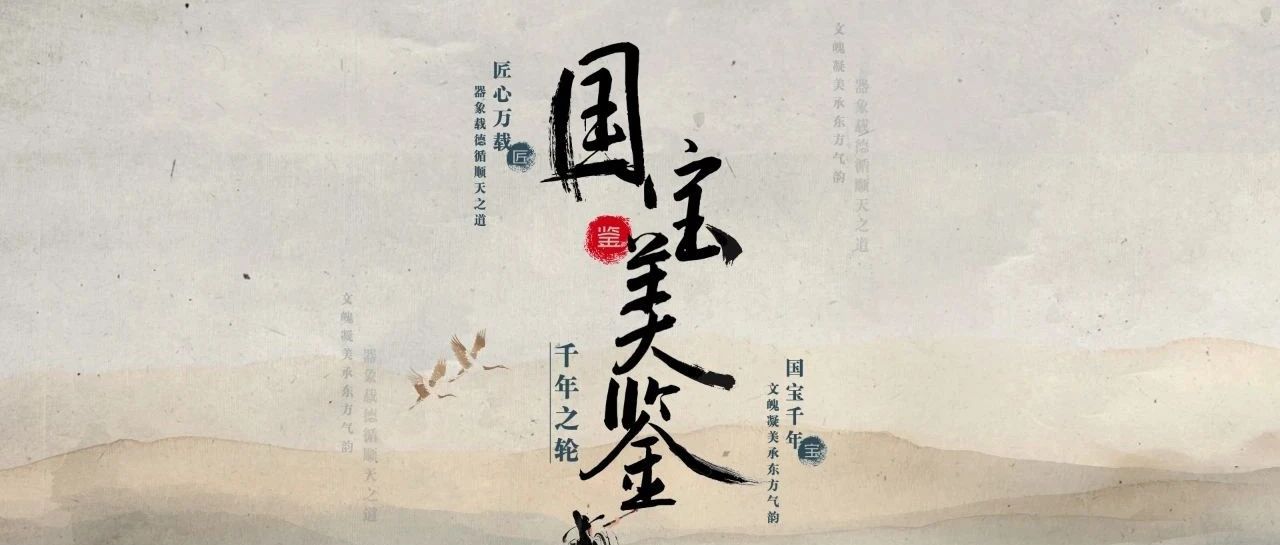 国宝美鉴
鉴
匠心万载
匠
器象载德循顺天之道
千年之轮
国宝千年
宝
文魄凝美承东方气韵
文魄凝美承东方气韵
器象载德循顺天之道
文魄凝美承东方气韵
器象载德循顺天之道